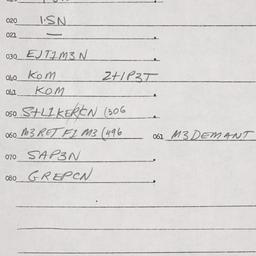 020 I·SN
021 —
030 EJTIM3N
040 KOM 2+1P3T
041 KOM
050 S+L1KERCN (506
060 M3RET F1 M3 (496 061 M3DEMANT
070 SAP3N
080 GREPCN